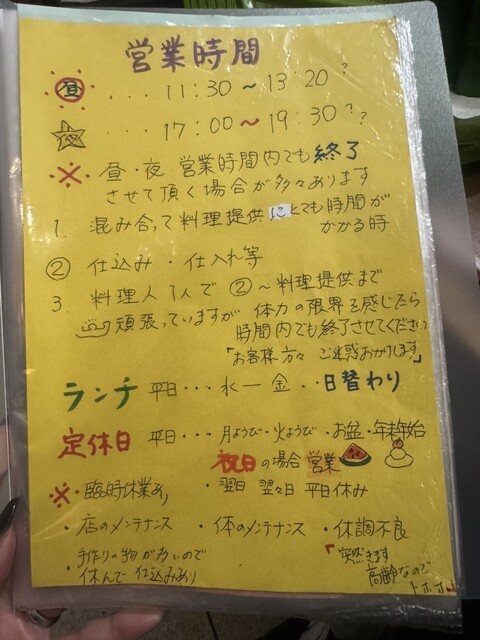 営業時間
昼 ・・・ 11:30 ～ 13:20 ?
・・・ 17:00 ～ 19:30 ? ?
※ 昼・夜 営業時間内でも終了
させて頂く場合が多々あります
1. 混み合って料理提供にとても時間が
かかる時
② 仕込み・仕入れ等
3. 料理人1人で ②～料理提供まで
頑張っていますが 体力の限界を感じたら
時間内でも終了させてください
「お客様方々 ご迷惑おかけします」
ランチ 平日・・・水ー金・・日替わり
定休日 平日・・・月ようび・火ようび・お盆・年末年始
祝日の場合 営業
※・臨時休業あり ・翌日 翌々日 平日休み
・店のメンテナンス ・体のメンテナンス ・休調不良
・手作りの物が多いので
休んで仕込みあり
「突然きます
高齢なので
トホホ」